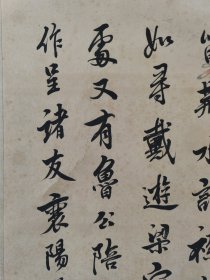 水
如尋戴遊梁
處又有魯公陪
作呈諸友襄陽